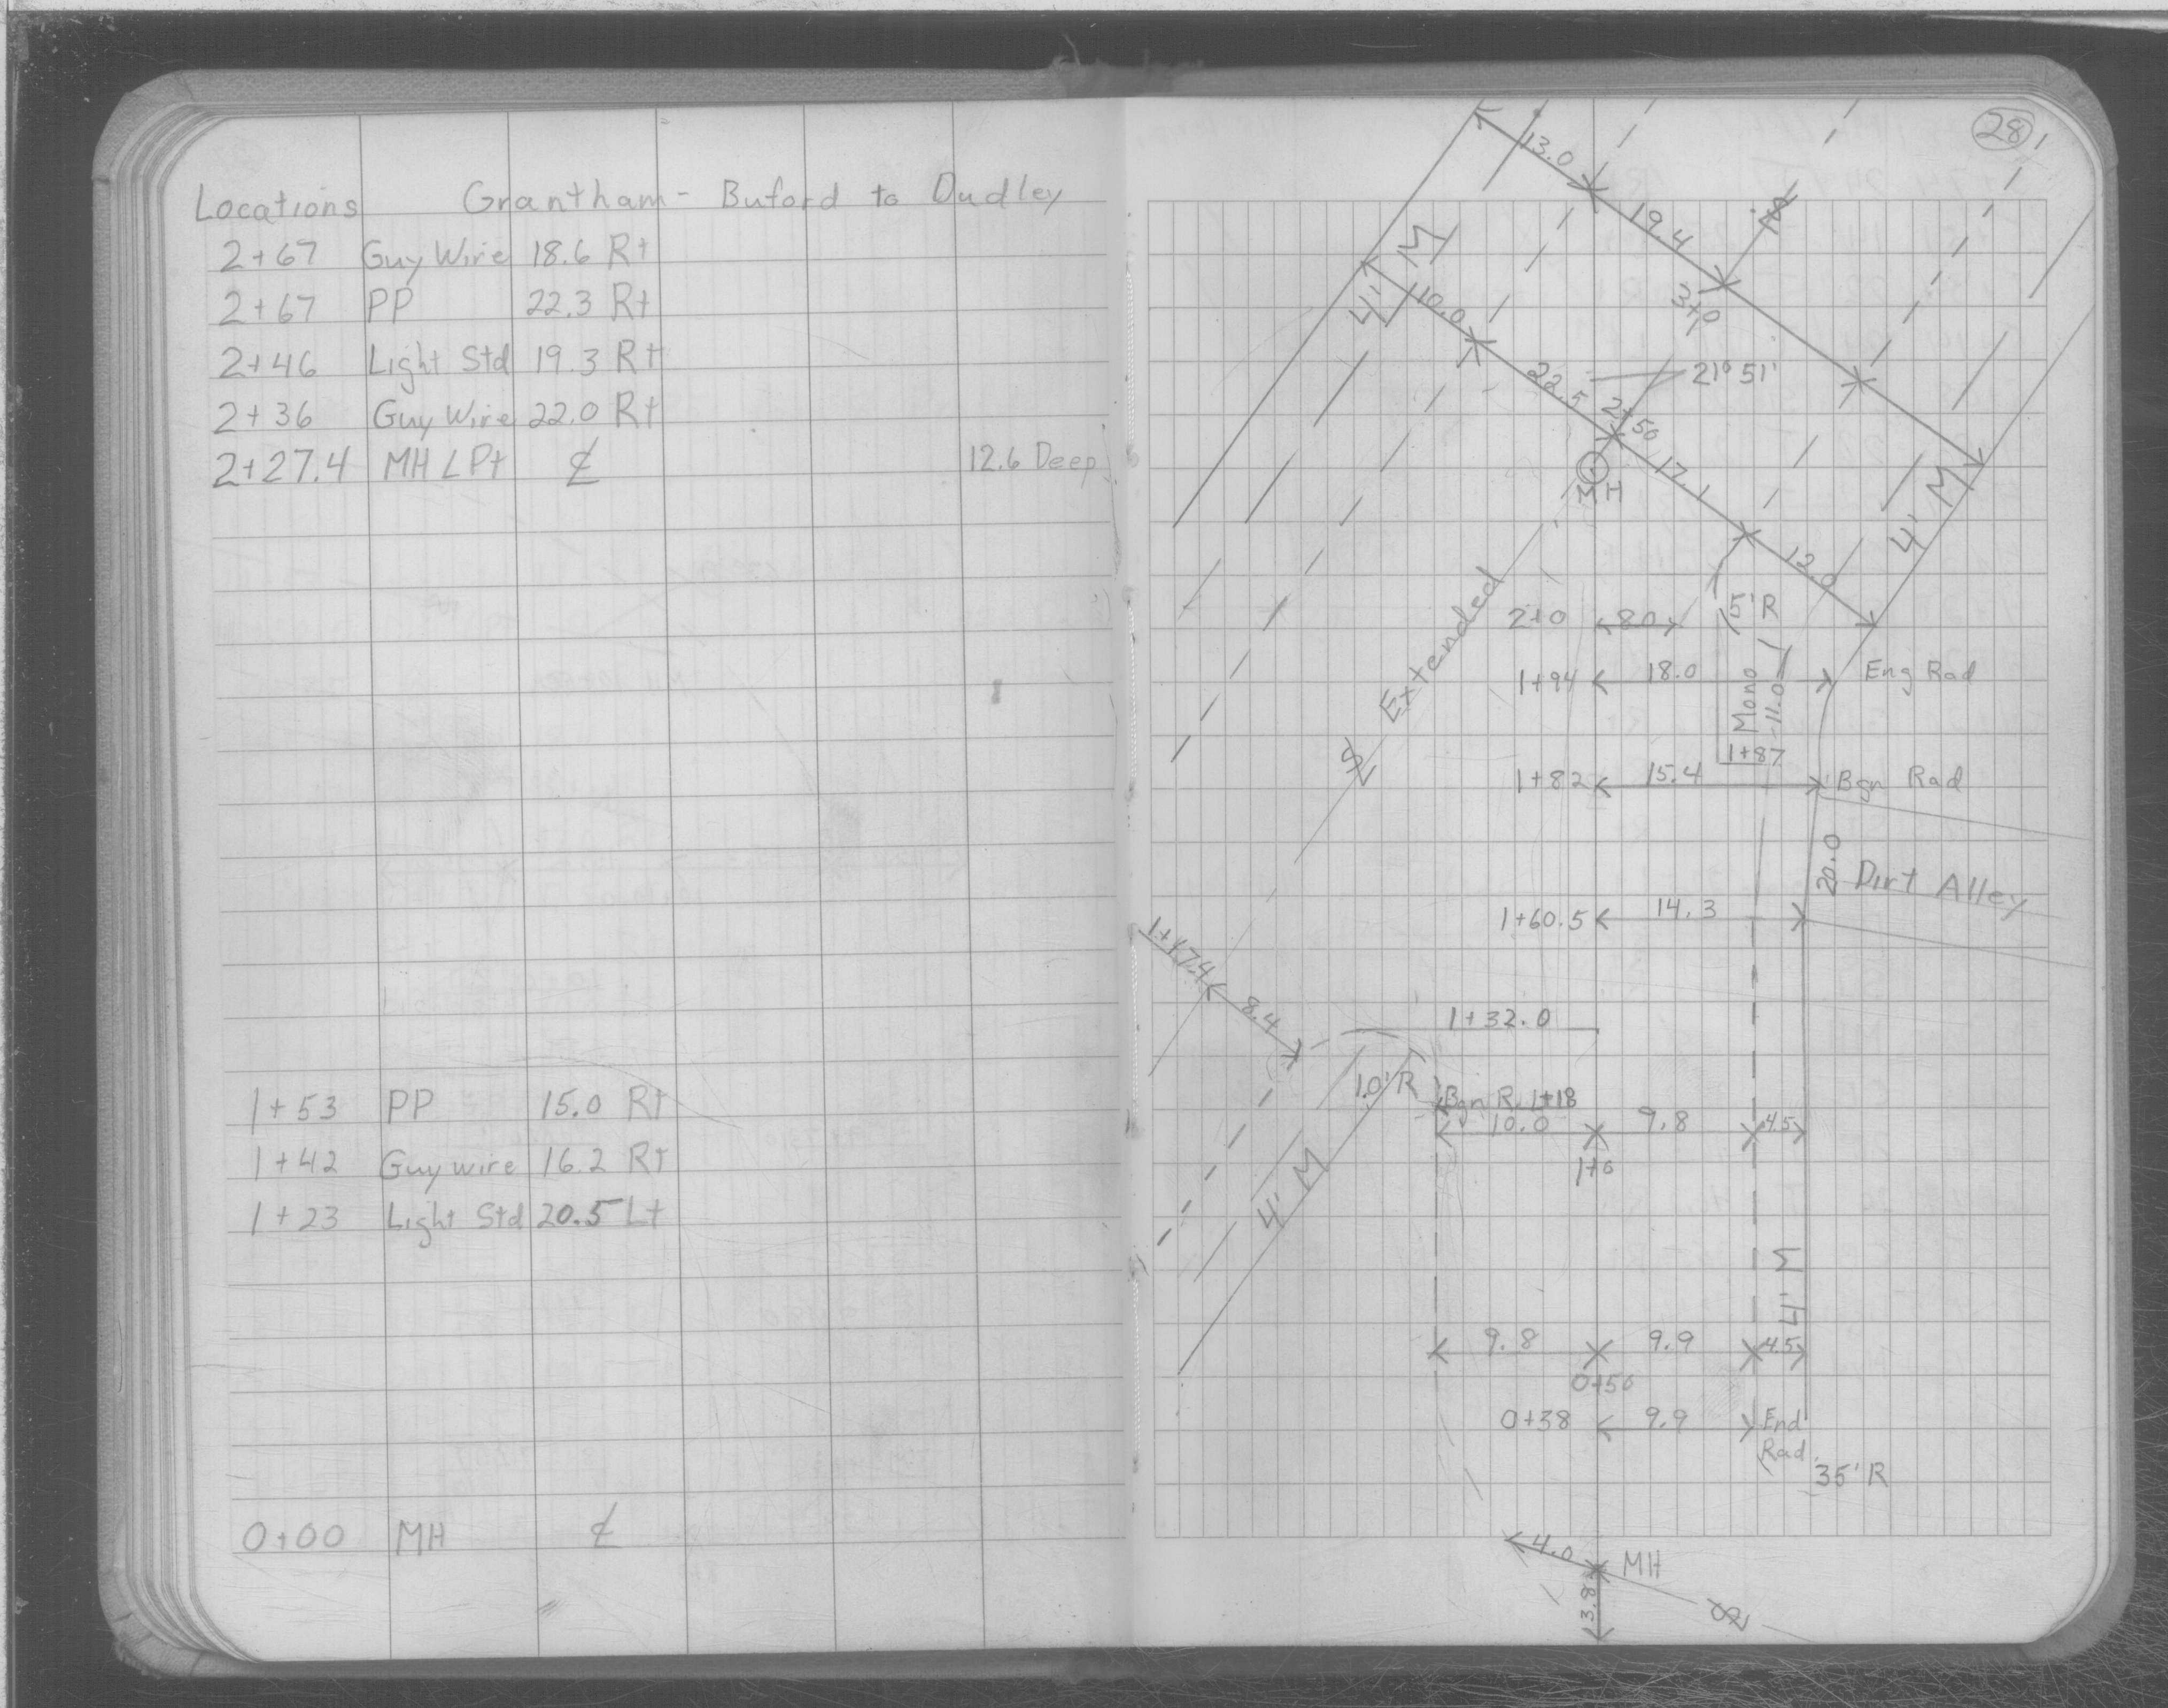 Locations Grantham - Buford to Dudley
2+67 Guy Wire 18.6 Rt
2+67 PP 22.3 Rt
2+46 Light Std 19.3 Rt
2+36 Guy Wire 22.0 Rt
2+27.4 MH L Pt ℄ 12.6 Deep
1+53 PP 15.0 Rt
1+42 Guy wire 16.2 Rt
1+23 Light Std 20.5 Lt
0+00 MH ℄
28
13.0
19.4
℄
4' M
10.0
3+0
22.5
21° 51'
2+50
17.1
MH
4' M
12.0
℄ Extended
2+0 8.0
5'R
1+94 18.0 Eng Rad
Mono
11.0
1+87
1+82 15.4 Bgn Rad
20.0 Dirt Alley
1+60.5 14.3
1+17.4
8.4
1+32.0
10'R
Bgn R 1+18
10.0 9.8 4.5
1+0
4' M
4' M
9.8 9.9 4.5
0+50
0+38 9.9 End
Rad
35' R
4.0 MH
3.8
℄